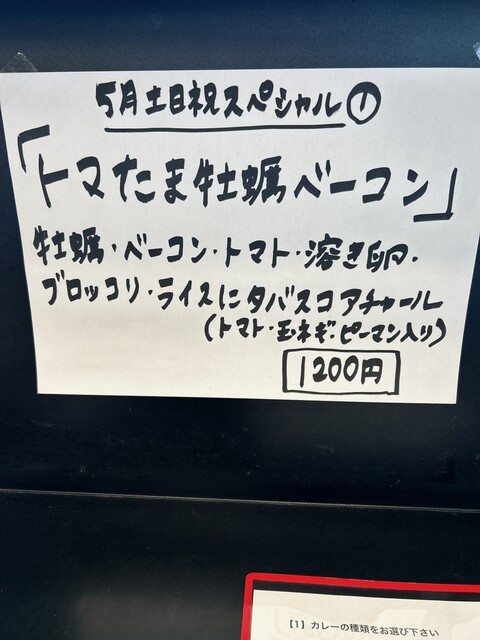 5月土日祝スペシャル①
「トマたま牡蠣ベーコン」
牡蠣・ベーコン・トマト・溶き卵・
ブロッコリ・ライスにタバスコアチャール
(トマト・玉ネギ・ピーマン入り)
1200円
【1】カレーの種類をお選び下さい